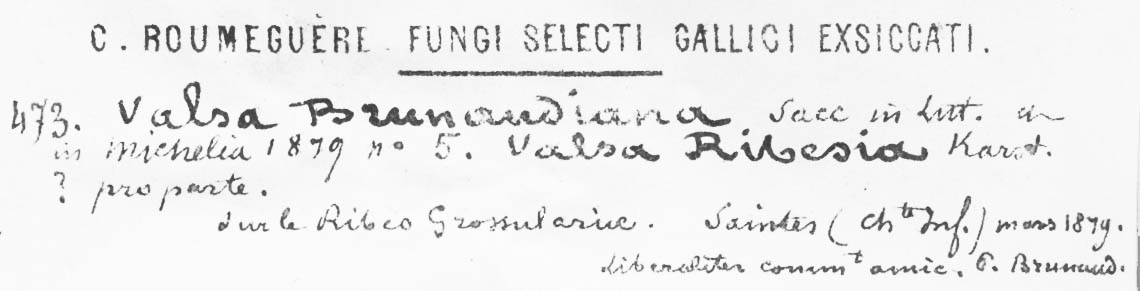 C. ROUMEGUÈRE. FUNGI SELECTI GALLICI EXSICCATI.
473. Valsa Brunaudiana Sacc in Litt.
in Michelia 1879 no 5. Valsa Ribesia Karst.
? pro parte.
Sur le Ribes Grossulariae. Saintes (Chte Inf.) mars 1879.
Liberaliter commt amic. P. Brunaud.